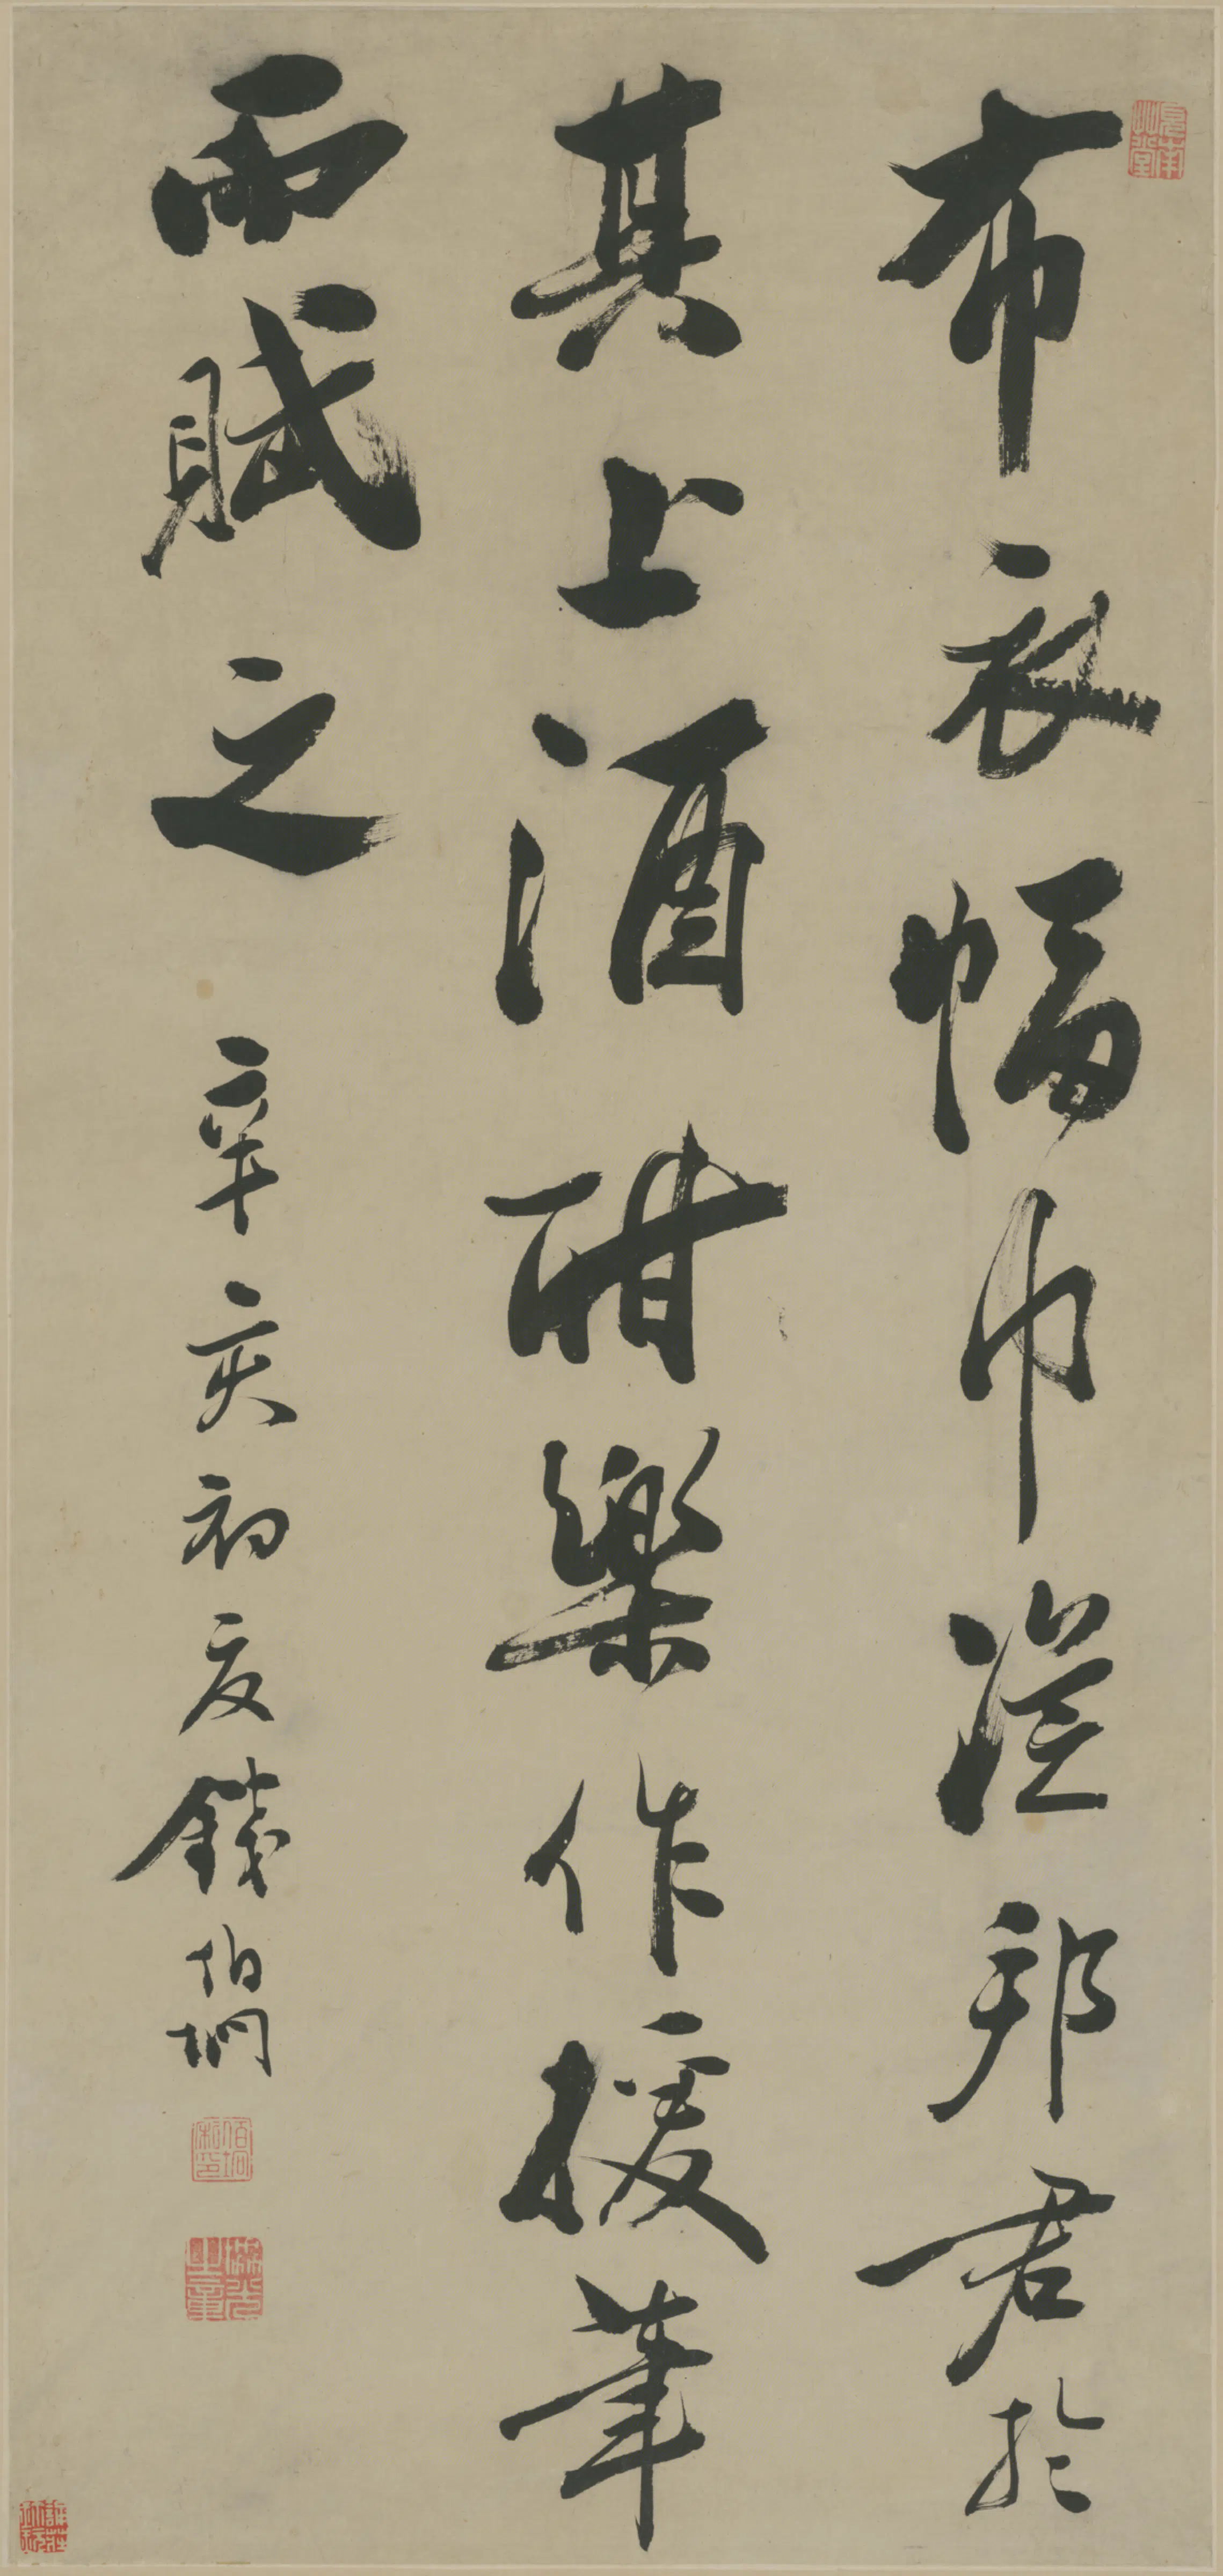 布衣幅巾從邦君於
其上酒酣樂作援筆
而賦之
辛亥初夏錢伯坰